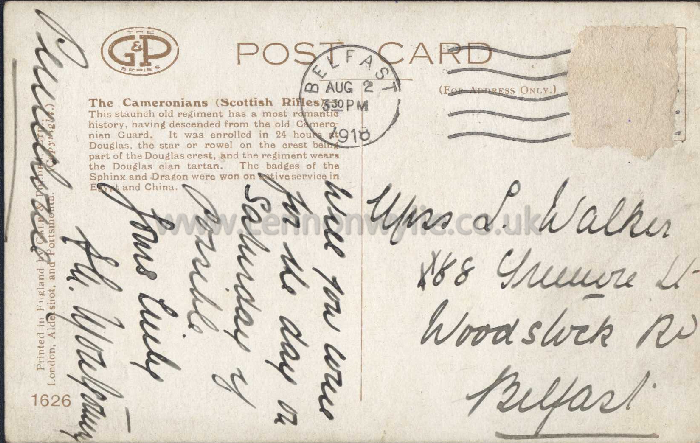 THE
G&P
SERIES
POST CARD
(FOR ADDRESS ONLY.)
BELFAST
AUG 2
3 30 PM
1918
The Cameronians (Scottish Rifles).
This staunch old regiment has a most romantic
history, having descended from the old Camero-
nian Guard. It was enrolled in 24 hours at
Douglas, the star or rowel on the crest being
part of the Douglas crest, and the regiment wears
the Douglas clan tartan. The badges of the
Sphinx and Dragon were won on active service in
Egypt and China.
Will you come
for the day on
Saturday if
possible
Yours truly
Miss L Walker
88 Greenore St
Woodstock Rd
Belfast
Printed in England by
London, Aldershot, and Portsmouth.
1626
www.lennonwylie.co.uk